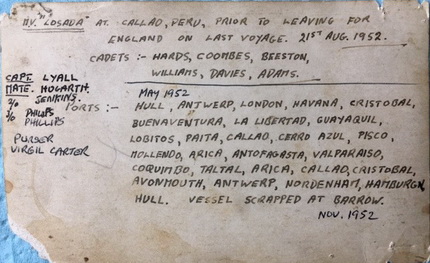 M.V. "LOSADA" AT CALLAO, PERU, PRIOR TO LEAVING FOR
ENGLAND ON LAST VOYAGE. 21ST AUG. 1952.
CADETS :- HARDS, COOMBES, BEESTON,
WILLIAMS, DAVIES, ADAMS.
CAPT. LYALL
MATE. HOGARTH.
2/O JENKINS.
3/O PHILIPS
PHILLIPS
PURSER
VIRGIL CARTER
MAY 1952
PORTS :- HULL, ANTWERP, LONDON, HAVANA, CRISTOBAL,
BUENAVENTURA, LA LIBERTAD, GUAYAQUIL,
LOBITOS, PAITA, CALLAO, CERRO AZUL, PISCO,
MOLLENDO, ARICA, ANTOFAGASTA, VALPARAISO,
COQUIMBO, TALTAL, ARICA, CALLAO, CRISTOBAL,
AVONMOUTH, ANTWERP, NORDENHAM, HAMBURG,
HULL. VESSEL SCRAPPED AT BARROW.
NOV. 1952